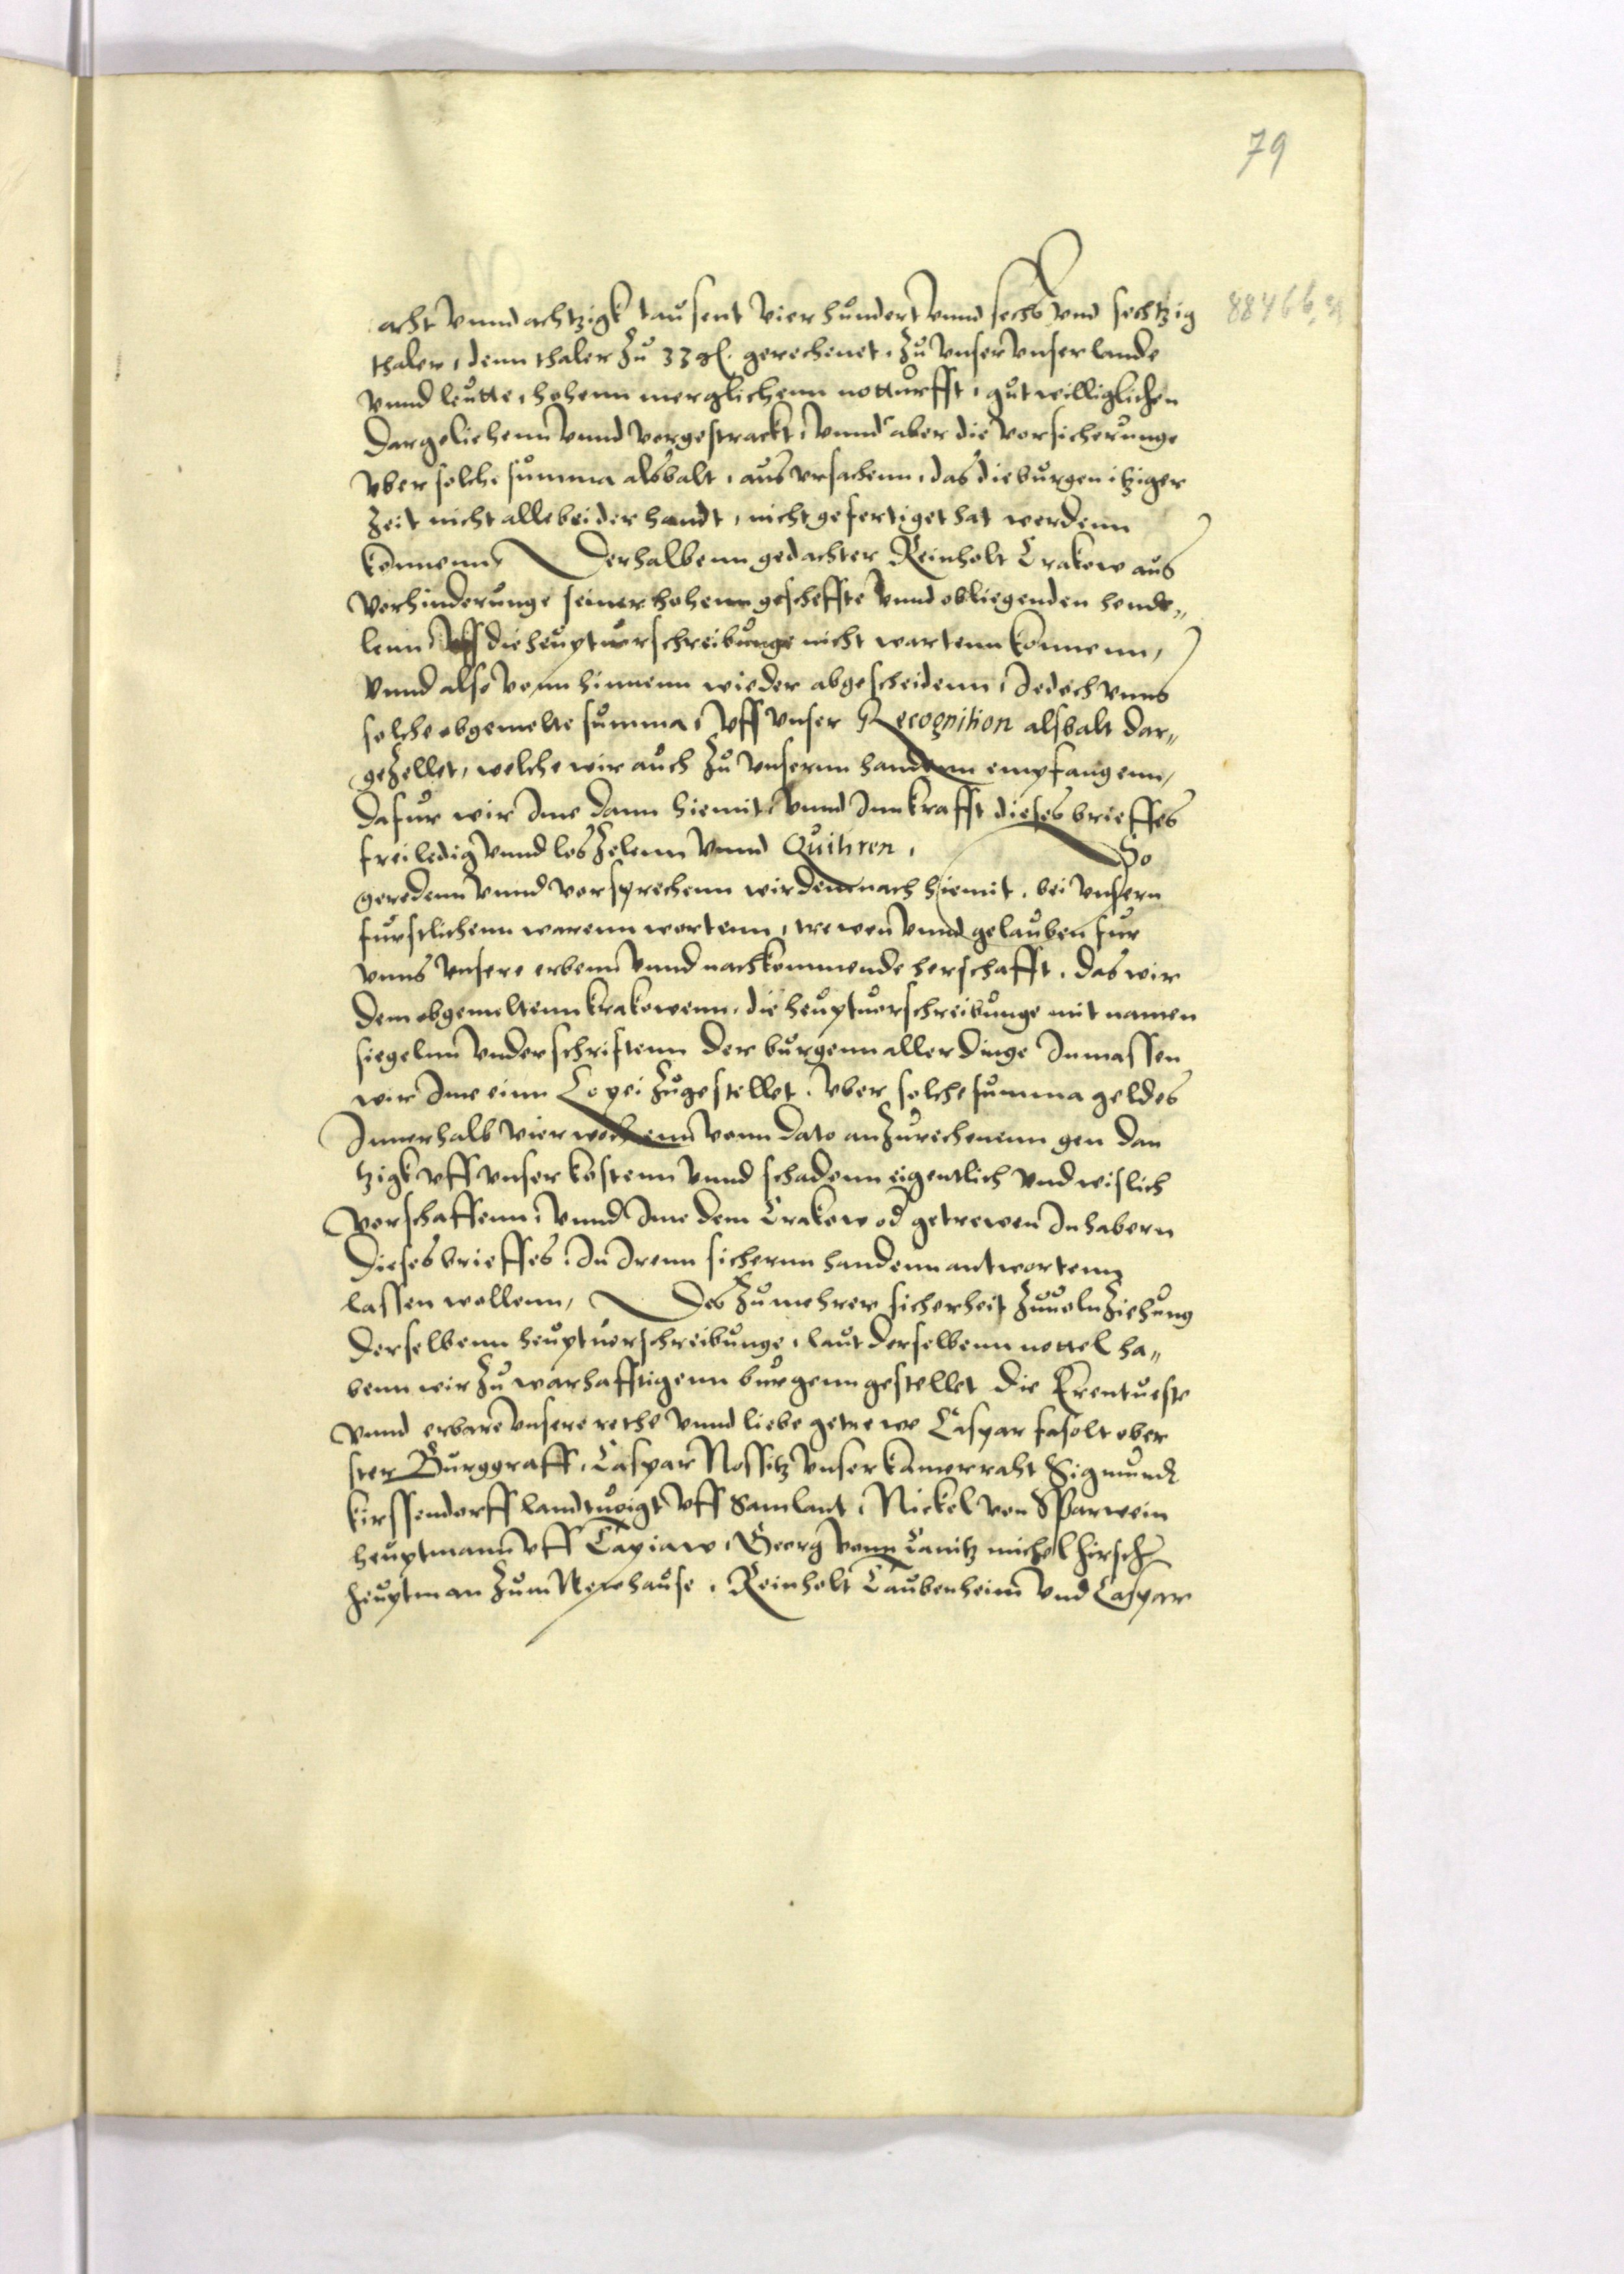 79
acht vnnd achtzigk tausent vier hundert vnnd sechs vnd sechtzig 88466
thaler, denn thaler zu 33 gl. gerechenet, zu vnser vnser lande
vnnd leutte, hohenn merglichenn notturfft, gutwilliglichen
dargeliehenn vnnd vorgestrackt, vnnd aber die vorsicherunge
vber solche summa alsbalt, aus vrsachenn, das die burgen itziger
Zeit nicht alle bei der handt, nicht gefertiget hat werdenn
konnenn, Derhalbenn gedachter Reinholt Crakow aus
vorhinderunge seiner hohenn gescheffte vnnd obliegenden hende„
lenn vff die heuptuorschreibunge nicht wartenn konnenn,
vnnd also vonn hinnenn wieder abgescheidenn, Jedoch vnns
solche obgemelte summa, vff vnser Recognition alsbalt dar„
gezellet, welche wir auch zu vnsernn handenn empfangenn,
dafur wir Ime dann hiemit, vnnd Inn krafft dieses brieffes
frei ledig vnnd los zelenn vnnd Quitiren, So
geredenn vnnd vorsprechenn wir demnach hiemit, bei vnsern
furstlichenn warenn wortenn, trewen vnnd gelauben fur
vnns vnsere erbenn vnnd nachkommende herschafft, das wir
dem obgemeltenn krakowenn, die heuptuorschreibunge mit namen
siegelnn vnderschriftenn der burgenn aller dinge Inmassen
wir Ime einn Copei zugestellet, vber solche summa geldes
Innerhalb vier wochenn vonn dato anzurechenenn gen dan
tzigk vff vnser kostenn vnnd schadenn eigentlich vnd wislich
vorschaffenn, vnnd Ime dem Crakow od getrewen Inhabern
dieses brieffes, In Irenn sichernn handenn antwortenn
lassen wollenn, Des zu mehrer sicherheit zuuolnziehung
derselbenn heuptuorschreibunge, laut derselbenn nottel ha„
benn wir zu warhafftigenn burgenn gestellet die Erentueste
vnnd erbare vnsere rethe vnnd liebe getrewe Caspar fasolt ober
ster Burggraff, Caspar Nostitz vnser kamerraht Sigmundt
kirssendorff landtuoigt vff Samlant, Nickel von Sparwein
heuptmann vff Tapiaw, Georg vonn Canitz michel hirsch
heuptman zum Newhause, Reinholt Taubenheim vnd Caspar